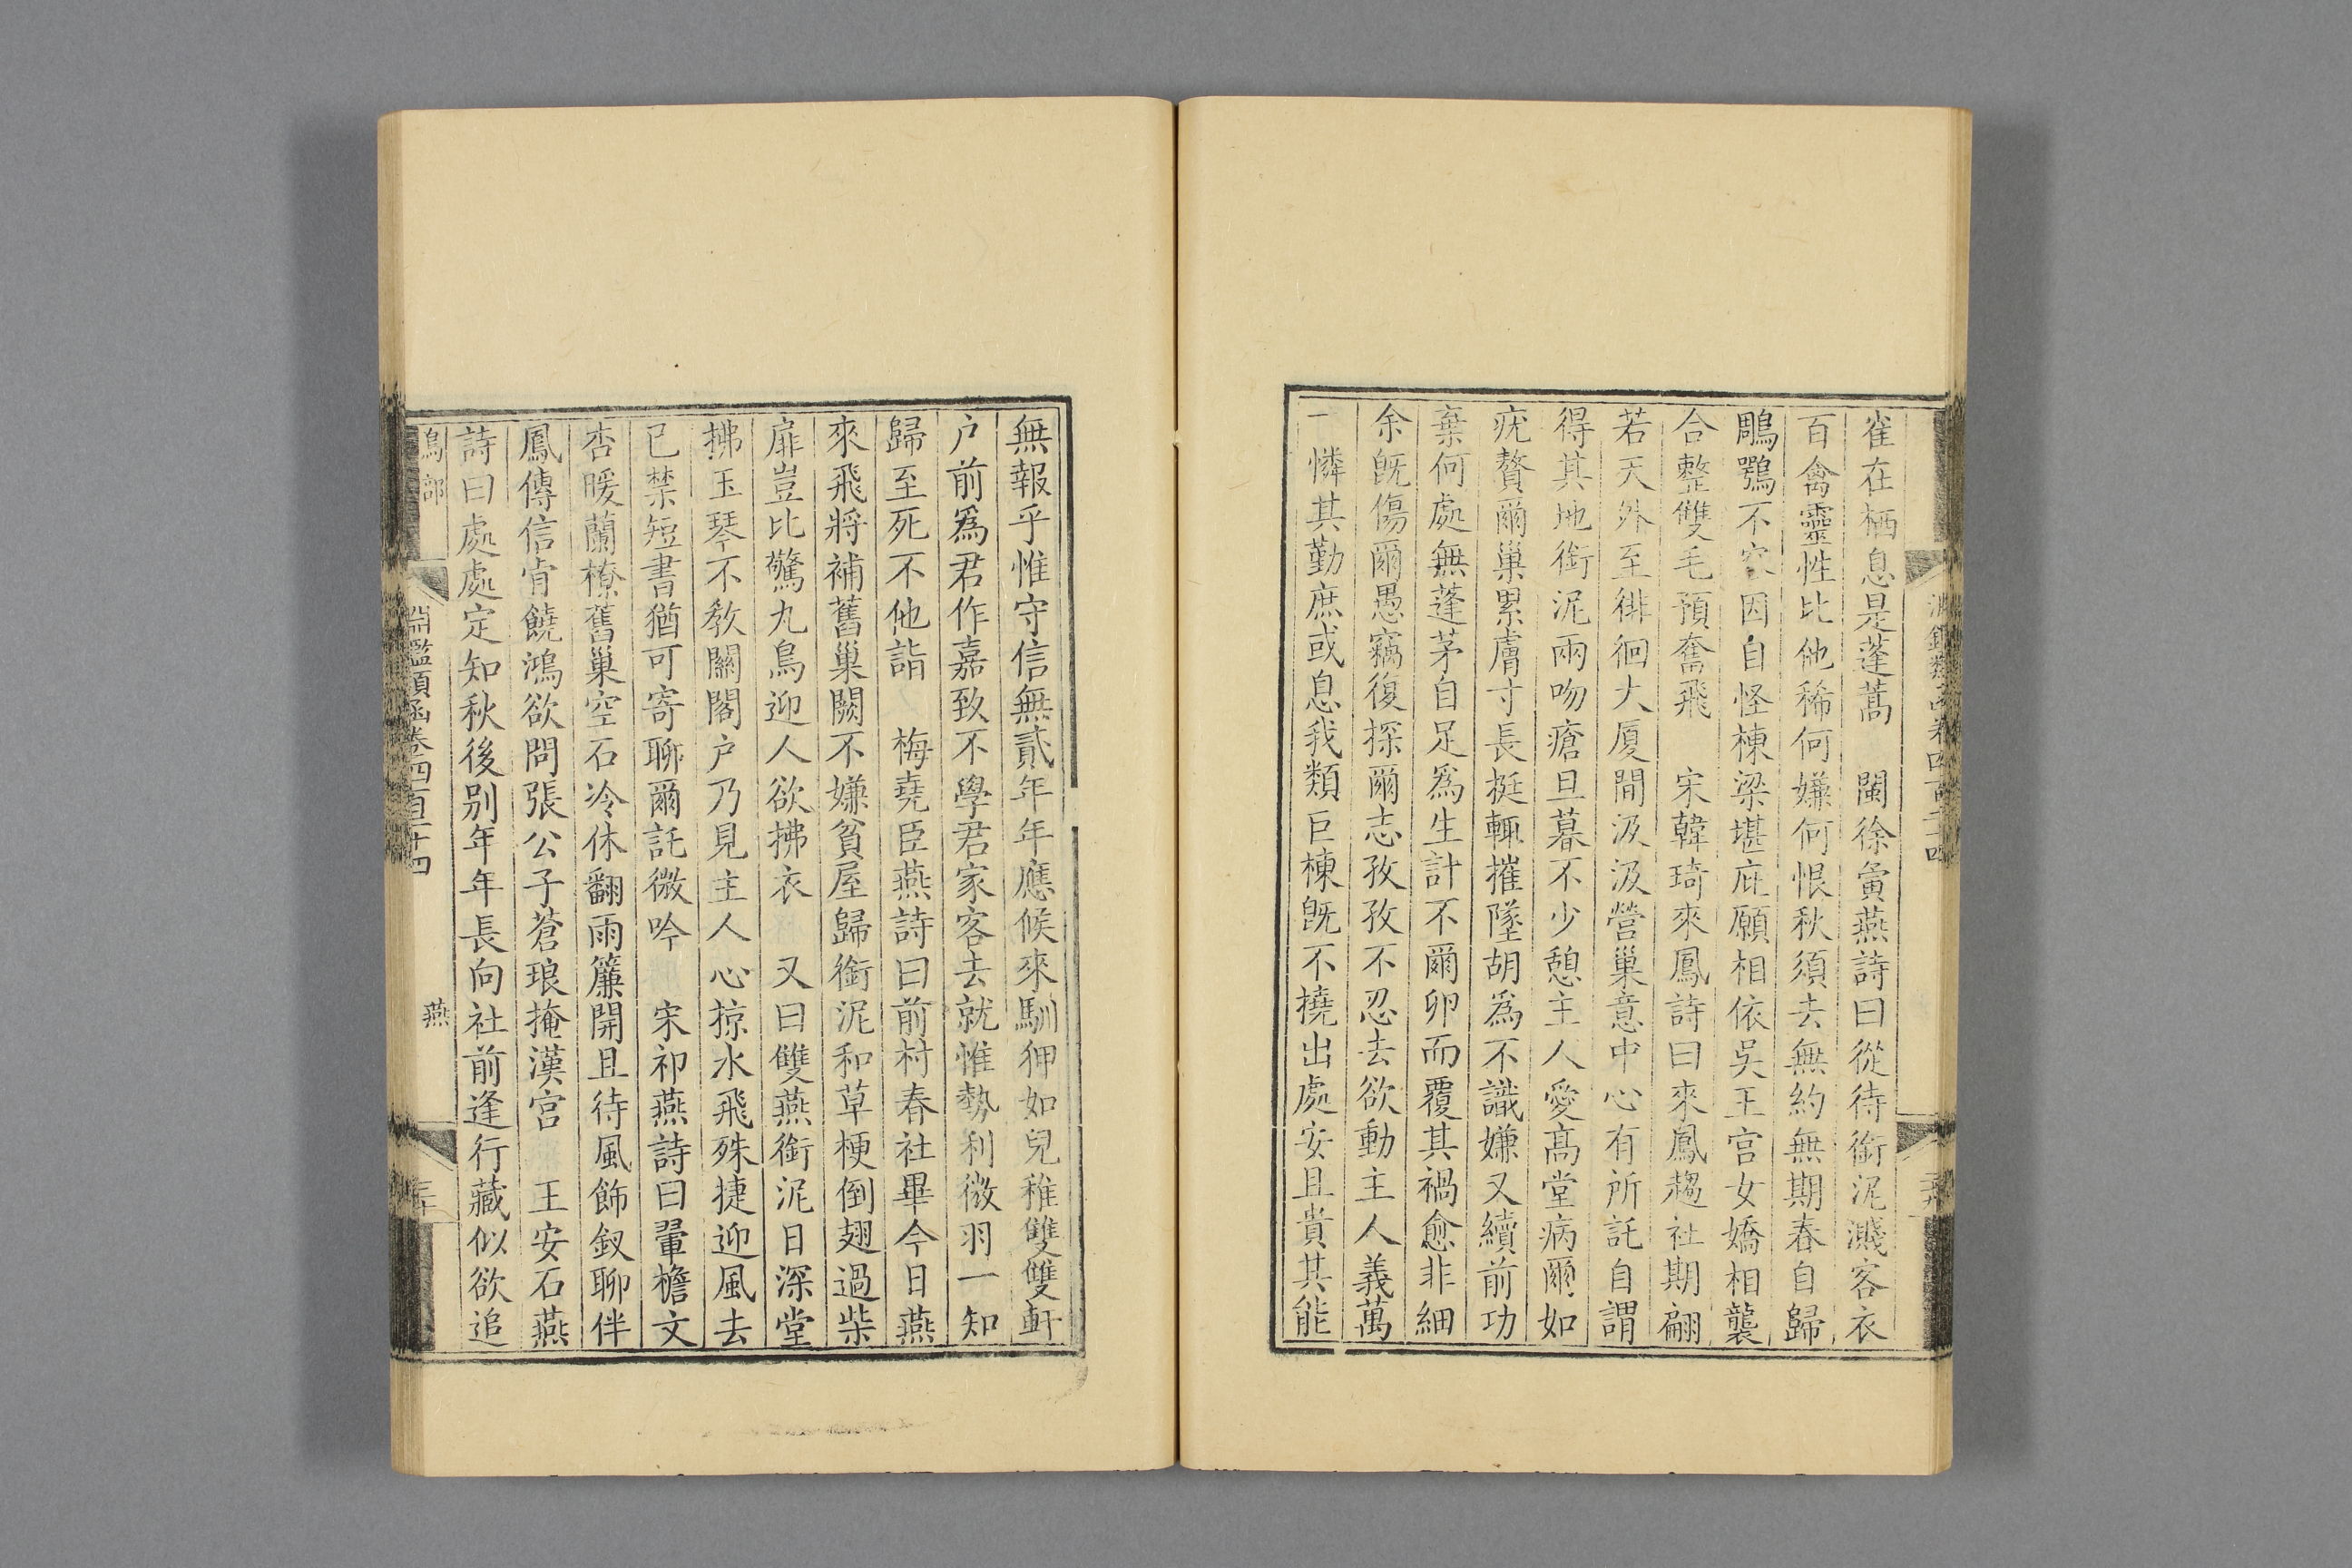 雀在栖息是蓬蒿　閩徐夤燕詩曰從待銜泥濺客衣
百禽靈性比他稀何嫌何恨秋須去無約無期春自歸
鵰鶚不容因自怪棟梁堪庇願相依吳王宮女嬌相襲
合整雙毛預奮飛　宋韓琦來鳳詩曰來鳳趨社期翩
若天外至徘徊大厦間汲汲營巢意中心有所託自謂
得其地銜泥兩吻瘡旦暮不少憩主人愛高堂病爾如
疣贅爾巢累膚寸長挺輒摧墜胡為不識嫌又續前功
棄何處無蓬茅自足為生計不爾卵而覆其禍愈非細
余旣傷爾愚竊復探爾志孜孜不忍去欲動主人義萬
一憐其勤庶或息我類巨棟旣不撓出處安且貴其能
無報乎惟守信無貳年年應候來馴狎如兒稚雙雙軒
户前爲君作嘉致不學君家客去就惟勢利微羽一知
歸至死不他詣　梅堯臣燕詩曰前村春社畢今日燕
來飛將補舊巢闕不嫌貧屋歸銜泥和草梗倒翅過柴
扉豈比驚丸鳥迎人欲拂衣　又曰雙燕銜泥日深堂
拂玉琴不教關閤户乃見主人心掠水飛殊捷迎風去
已禁短書猶可寄聊爾託微吟　宋祁燕詩曰翬檐文
杏暖蘭橑舊巢空石冷休翻雨簾開且待風飾釵聊伴
鳳傳信肯饒鴻欲問張公子蒼琅掩漢宮　王安石燕
詩曰處處定知秋後别年年長向社前逢行藏似欲追
鳥部　淵鑑類函卷四百二十四　燕